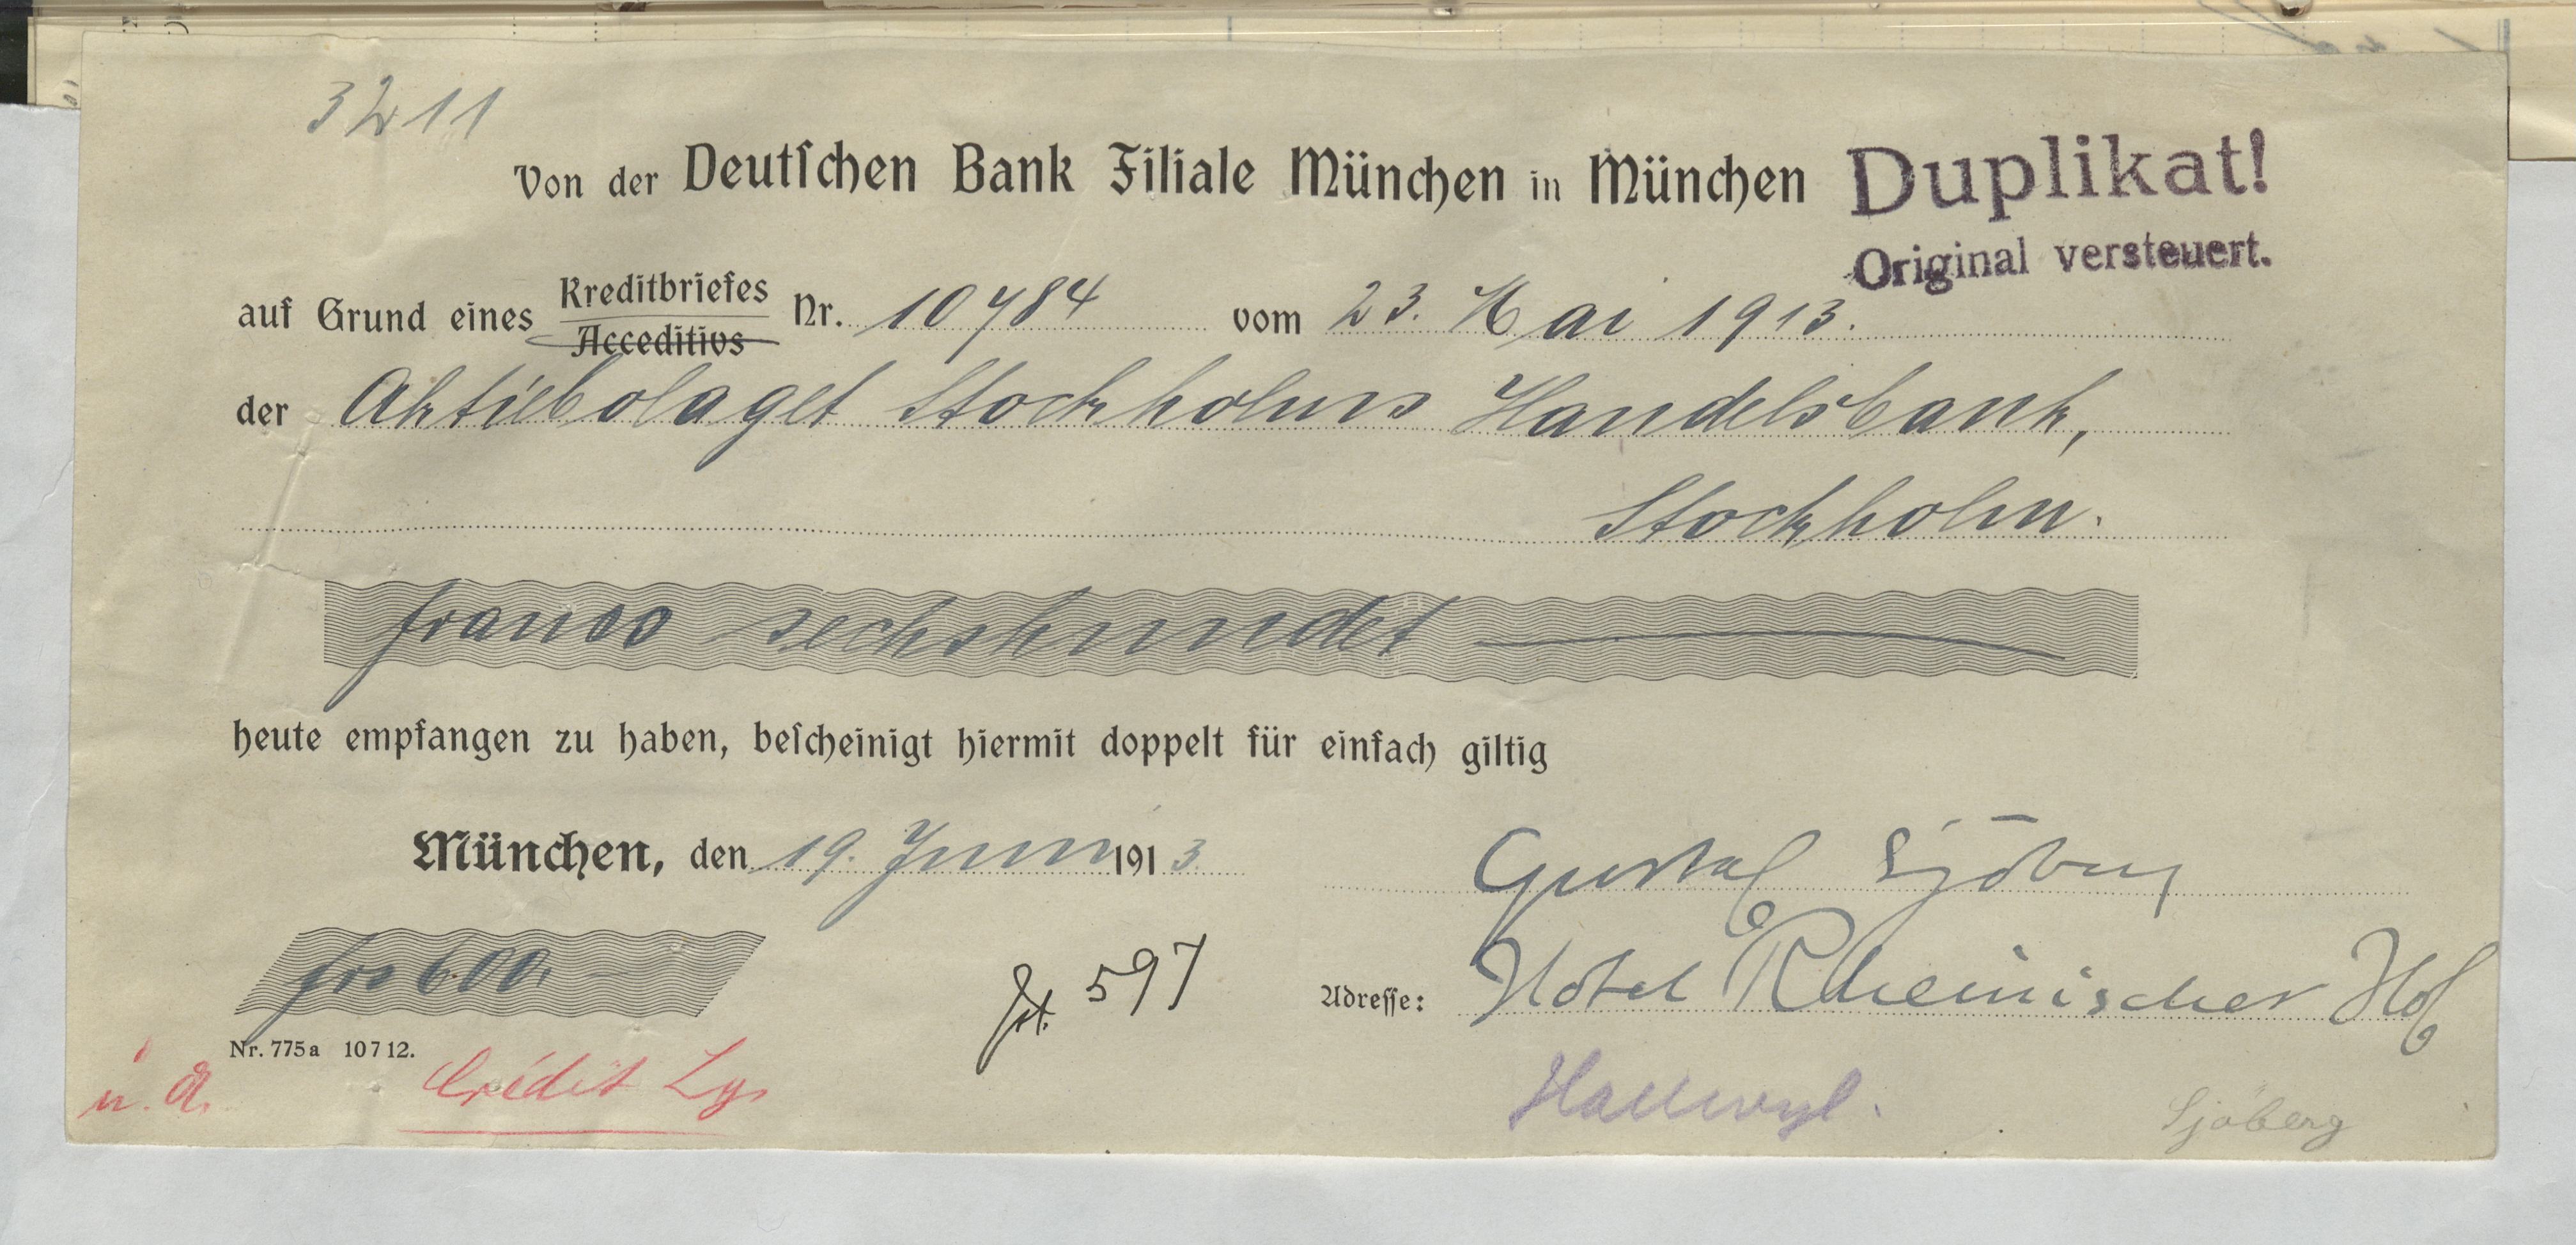 3211
Von der Deutſchen Bank Filiale München in München
Duplikat!
Original versteuert.
auf Grund eines Kreditbriefes Nr. 10484 vom 23. Mai 1913.
Acceditivs
der Aktiebolaget Stockholms Handelsbank,
Stockholm.
francs sechshundet
heute empfangen zu haben, beſcheinigt hiermit doppelt für einfach giltig
München, den 19. Juni 1913.
Gustaf Sjöberg
frs 600.—
597
Adreſſe: Hôtel Rheinischer Hof
Nr. 775a 10712.
u. a. Crédit Ly.
Hallwyl.
Sjöberg